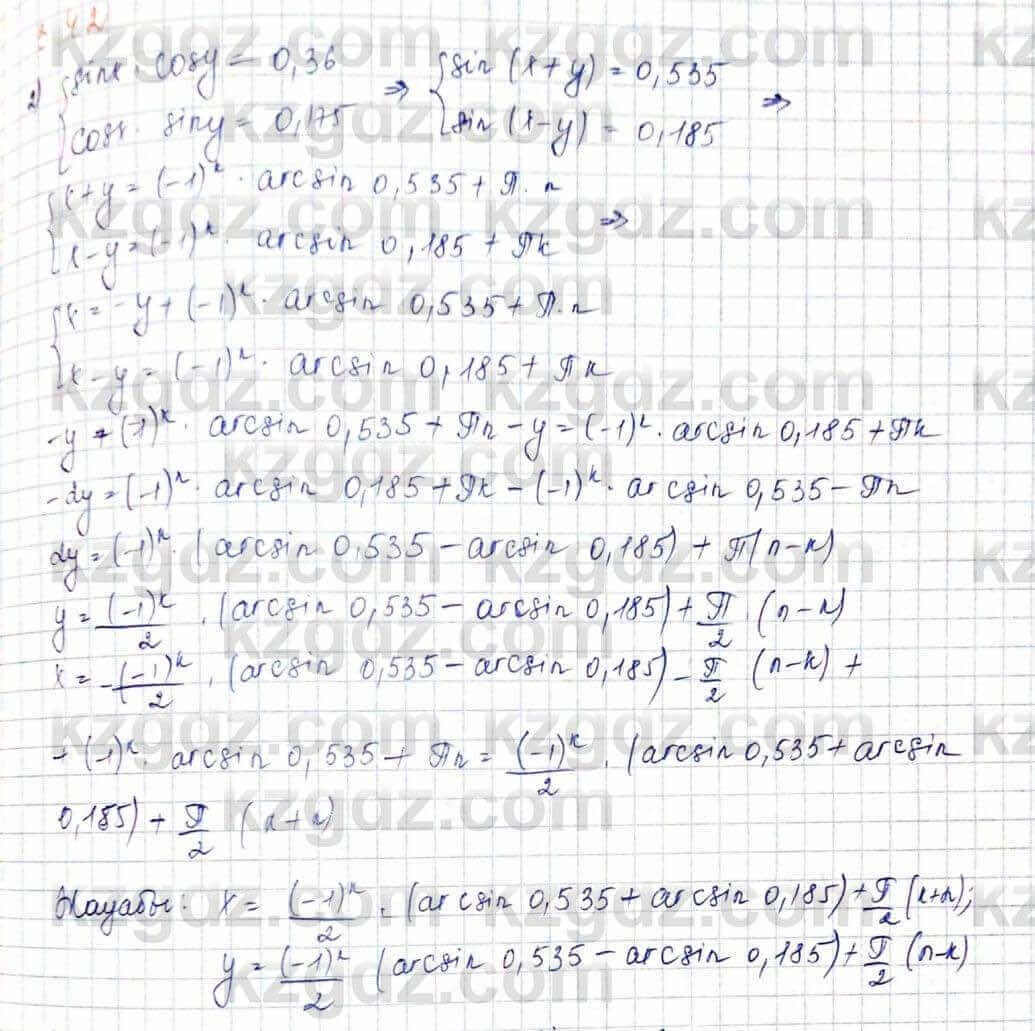 2) {sinx · cosy = 0,36 ⇒ {sin (x+y) = 0,535 ⇒
{cosx · siny = 0,175 {sin (x-y) = 0,185
{x+y = (-1)ⁿ · arcsin 0,535 + П · n ⇒
{x-y = (-1)ᵏ · arcsin 0,185 + Пk
{x = -y + (-1)ⁿ · arcsin 0,535 + П · n
{x-y = (-1)ᵏ · arcsin 0,185 + Пk
-y + (-1)ᵏ · arcsin 0,535 + Пn - y = (-1)ᵏ · arcsin 0,185 + Пk
-2y = (-1)ᵏ · arcsin 0,185 + Пk - (-1)ᵏ · arcsin 0,535 - Пn
2y = (-1)ᵏ · (arcsin 0,535 - arcsin 0,185) + П(n-k)
y = (-1)ᵏ/2 · (arcsin 0,535 - arcsin 0,185) + П/2 · (n-k)
x = -(-1)ᵏ/2 · (arcsin 0,535 - arcsin 0,185) - П/2 (n-k) +
+ (-1)ᵏ · arcsin 0,535 + Пn = (-1)ᵏ/2 · (arcsin 0,535 + arcsin
0,185) + П/2 (k+n)
Жауабы: x = (-1)ᵏ/2 · (arcsin 0,535 + arcsin 0,185) + П/2 (k+n);
y = (-1)ᵏ/2 (arcsin 0,535 - arcsin 0,185) + П/2 (n-k)
kzgdz.com